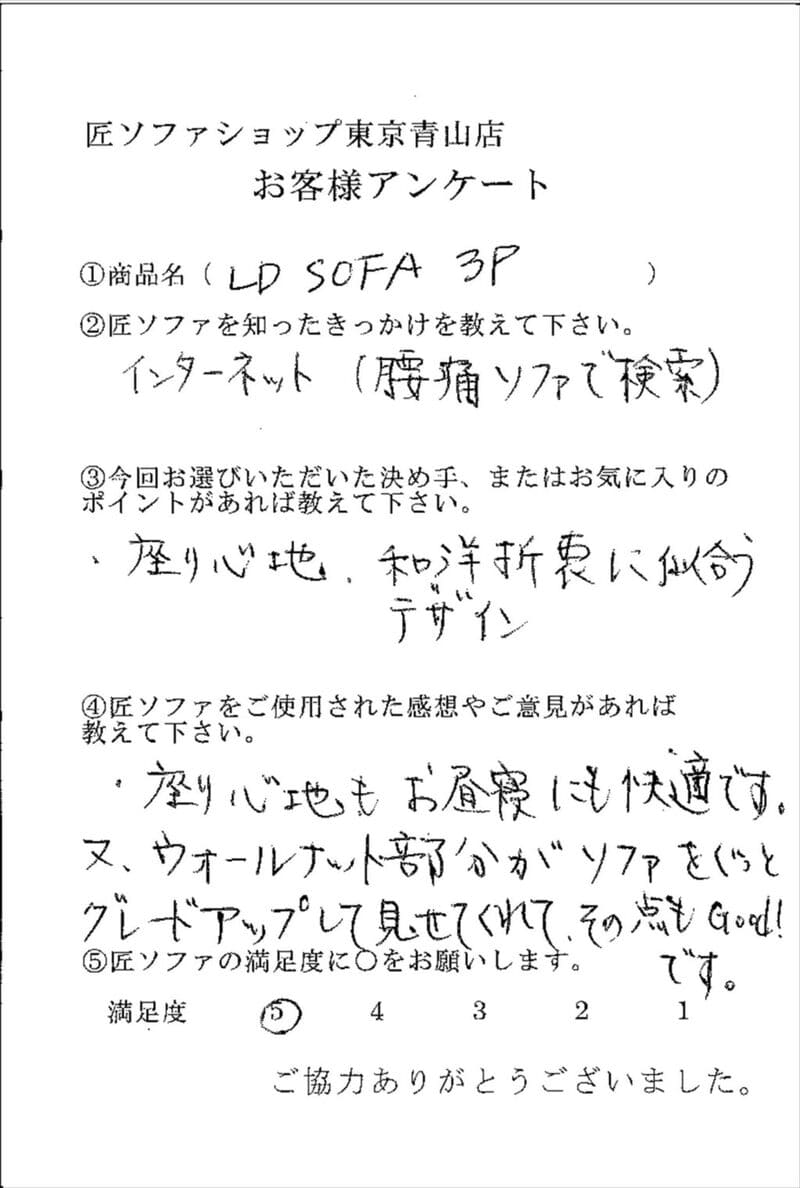 匠ソファショップ東京青山店
お客様アンケート
①商品名（ LD SOFA 3P ）
②匠ソファを知ったきっかけを教えて下さい。
インターネット（腰痛ソファで検索）
③今回お選びいただいた決め手、またはお気に入りの
ポイントがあれば教えて下さい。
・座り心地、和洋折衷に似合う
デザイン
④匠ソファをご使用された感想やご意見があれば
教えて下さい。
・座り心地もお昼寝にも快適です。
又、ウォールナット部分がソファをぐっと
グレードアップして見せてくれて、その点もGood!
です。
⑤匠ソファの満足度に○をお願いします。
満足度 5 4 3 2 1
ご協力ありがとうございました。